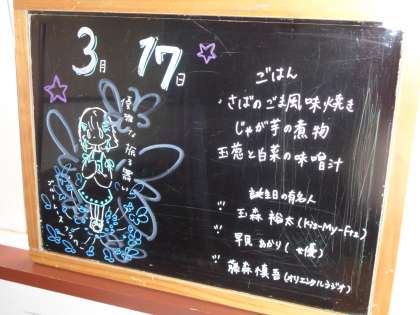 3月 17日
優雅な振る舞い
ごはん
さばのごま風味焼き
じゃが芋の煮物
玉葱と白菜の味噌汁
誕生日の有名人
玉森 裕太(Kis-My-Ft2)
早見 あかり(女優)
藤森 慎吾(オリエンタルラジオ)